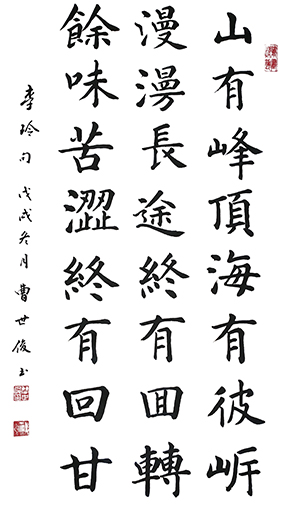 山有峰頂海有彼岸
漫漫長途終有囬轉
餘味苦澀終有回甘
李玲句 戊戌冬月 曹世俊书